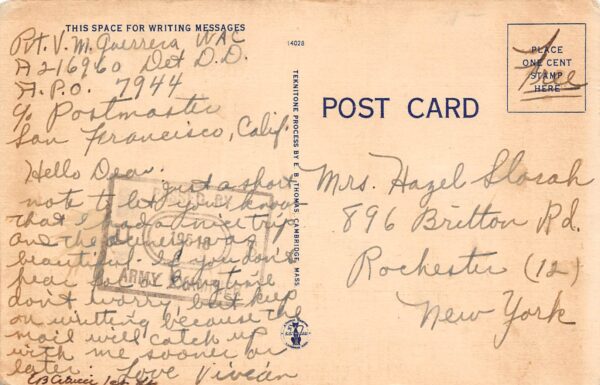 THIS SPACE FOR WRITING MESSAGES
Pvt. V. M. Guerrera WAC
A216960 Det D.D.
A.P.O. 7944
c/o Postmaster
San Francisco, Calif.
Hello Dear.
Just a short
note to let you know
that I had a nice trip
and the scenery was
beautiful. If you don't
hear for a longtime
don't worry, but keep
on writting because the
mail will catch up
with me sooner or
later. Love Vivian
ARMY
14028
TEKNITONE PROCESS BY E. B. THOMAS, CAMBRIDGE, MASS
POST CARD
PLACE
ONE CENT
STAMP
HERE
Free
Mrs. Hazel Slocah
896 Britton Rd.
Rochester (12)
New York